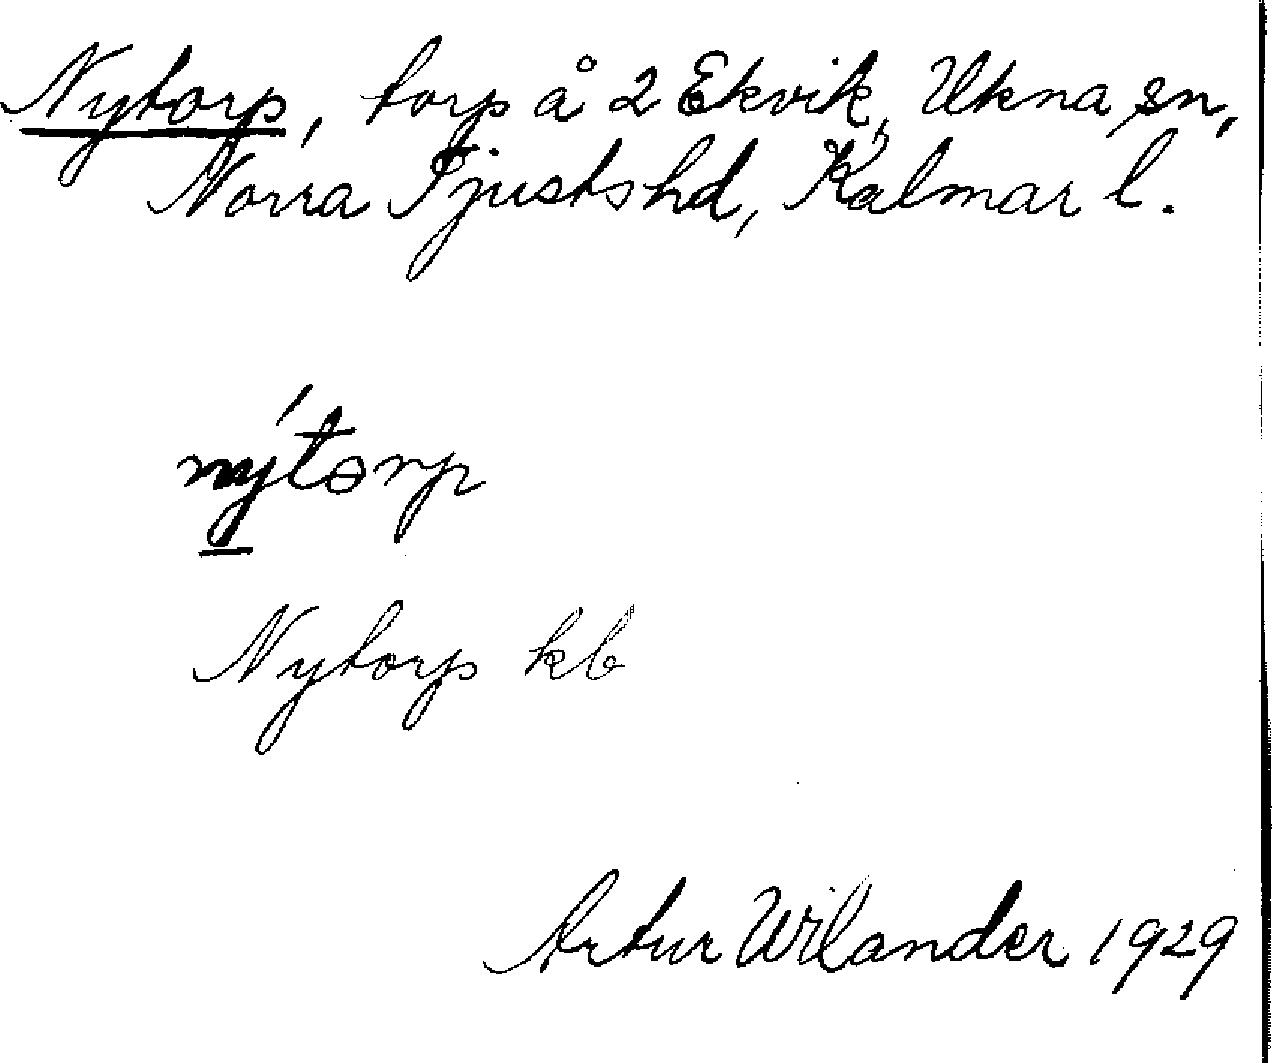 Nytorp, torp å 2 Ekvik, Ukna sn,
Norra Tjusts hd, Kalmar l.
nýtɵrp
Nytorp kb
Artur Wilander 1929